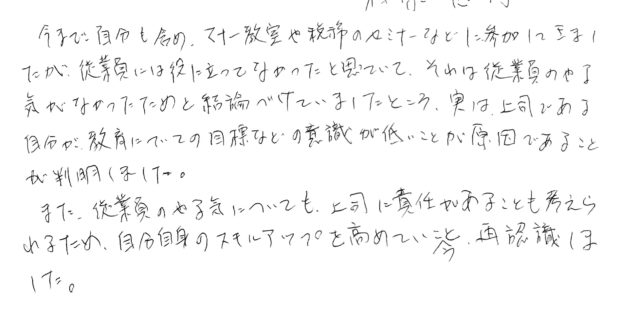 今まで、自分も含め、マナー教室や税務のセミナーなどに参加してきまし
たが、従業員には役に立ってなかったと思っていて、それは従業員のやる
気がなかったためと結論づけていましたところ、実は、上司である
自分が、教育についての目標などの意識が低いことが原因であること
が判明しました。
また、従業員のやる気についても、上司に責任があることも考えら
れるため、自分自身のスキルアップを高めていこと、再認識しま
した。